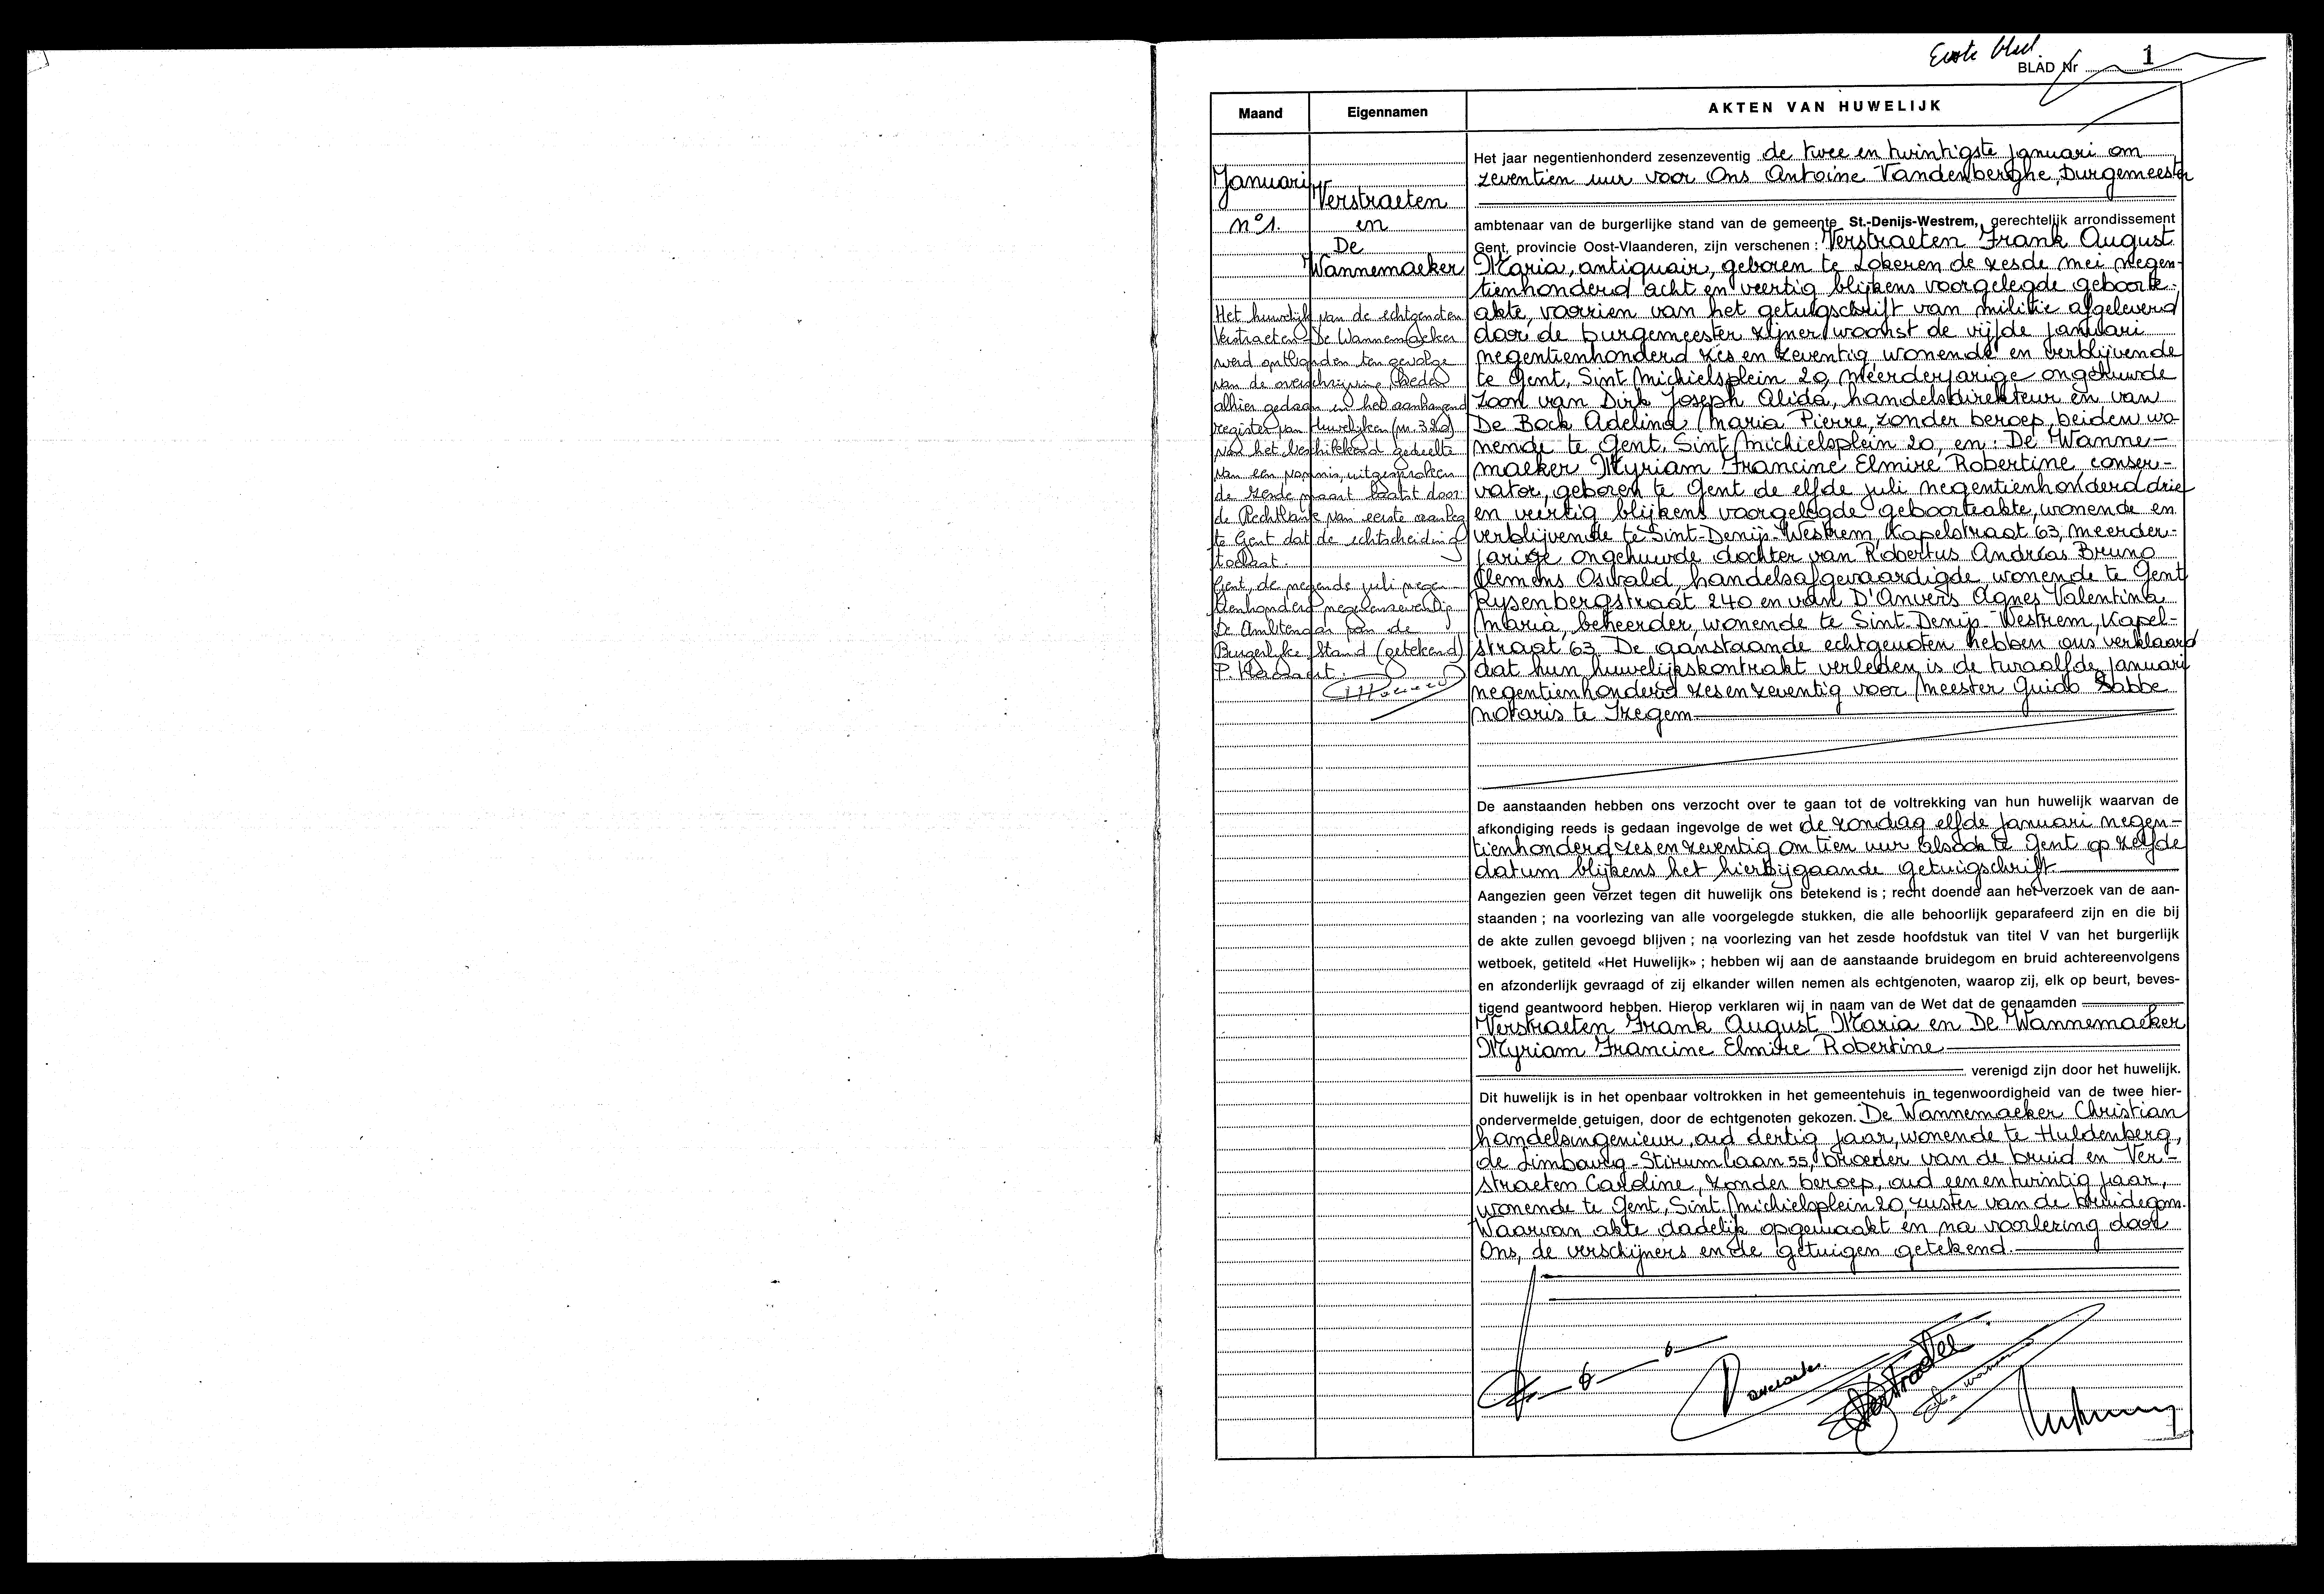 Eerste blad
BLAD Nr 1
Maand
Eigennamen
AKTEN VAN HUWELIJK
Januari
n°1.
Verstraeten
en
De
Wannemaeker
Het huwelijk van de echtgenoten
Verstraeten - De Wannemaeker
werd ontbonden ten gevolge
van de overschrijving, heden
alhier gedaan in het aanhangend
register van Huwelijken (nr. 320)
van het beschikkend gedeelte
van een vonnis, uitgesproken
de zesde maart laatst door
de Rechtbank van eerste aanleg
te Gent dat de echtscheiding
toelaat.
Gent, de negende juli negen-
tienhonderd negenenzeventig
De Ambtenaar van de
Burgerlijke Stand (getekend)
Het jaar negentienhonderd zesenzeventig de twee en twintigste januari om
zeventien uur voor Ons Antoine Vandenberghe, Burgemeester
ambtenaar van de burgerlijke stand van de gemeente St.-Denijs-Westrem, gerechtelijk arrondissement
Gent, provincie Oost-Vlaanderen, zijn verschenen : Verstraeten Frank August
Maria, antiquair, geboren te Lokeren de zesde mei negen-
tienhonderd acht en veertig blijkens voorgelegde geboorte-
akte, voorzien van het getuigschrift van militie afgeleverd
door de burgemeester zijner woonst de vijfde januari
negentienhonderd zes en zeventig wonende en verblijvende
te Gent, Sint Michielsplein 20, meerderjarige ongehuwde
zoon van Dirk Joseph Alida, handelsdirekteur en van
De Bock Adelina Maria Pierre, zonder beroep, beiden wo-
nende te Gent, Sint Michielsplein 20, en : De Wanne-
maeker Myriam Francine Elmire Robertine, conser-
vator, geboren te Gent de elfde juli negentienhonderd drie
en veertig blijkens voorgelegde geboorteakte, wonende en
verblijvende te Sint-Denijs-Westrem, Kapelstraat 63, meerder-
jarige ongehuwde dochter van Robertus Andréas Bruno
Clemens Oswald, handelsafgevaardigde, wonende te Gent
Rysenbergstraat 240 en van D'Anvers Agnes Valentina
Maria, beheerder, wonende te Sint-Denijs-Westrem, Kapel-
straat 63. De aanstaande echtgenoten hebben ons verklaard
dat hun huwelijkskontrakt verleden is de twaalfde januari
negentienhonderd zesenzeventig voor Meester Guido Sabbe
notaris te Izegem
De aanstaanden hebben ons verzocht over te gaan tot de voltrekking van hun huwelijk waarvan de
afkondiging reeds is gedaan ingevolge de wet de zondag elfde januari negen-
tienhonderd zesenzeventig om tien uur alsook te Gent op zelfde
datum blijkens het hierbijgaande getuigschrift
Aangezien geen verzet tegen dit huwelijk ons betekend is ; recht doende aan het verzoek van de aan-
staanden ; na voorlezing van alle voorgelegde stukken, die alle behoorlijk geparafeerd zijn en die bij
de akte zullen gevoegd blijven ; na voorlezing van het zesde hoofdstuk van titel V van het burgerlijk
wetboek, getiteld «Het Huwelijk» ; hebben wij aan de aanstaande bruidegom en bruid achtereenvolgens
en afzonderlijk gevraagd of zij elkander willen nemen als echtgenoten, waarop zij, elk op beurt, beves-
tigend geantwoord hebben. Hierop verklaren wij in naam van de Wet dat de genaamden
Verstraeten Frank August Maria en De Wannemaeker
Myriam Francine Elmire Robertine
verenigd zijn door het huwelijk.
Dit huwelijk is in het openbaar voltrokken in het gemeentehuis in tegenwoordigheid van de twee hier-
ondervermelde getuigen, door de echtgenoten gekozen. De Wannemaeker Christian
handelsingenieur, oud dertig jaar, wonende te Huldenberg,
de Limbourg-Stirumlaan 55, broeder van de bruid en Ver-
straeten Caroline, zonder beroep, oud eenentwintig jaar,
wonende te Gent, Sint Michielsplein 20, zuster van de bruidegom.
Waarvan akte dadelijk opgemaakt en na voorlezing door
Ons, de verschijners en de getuigen getekend.